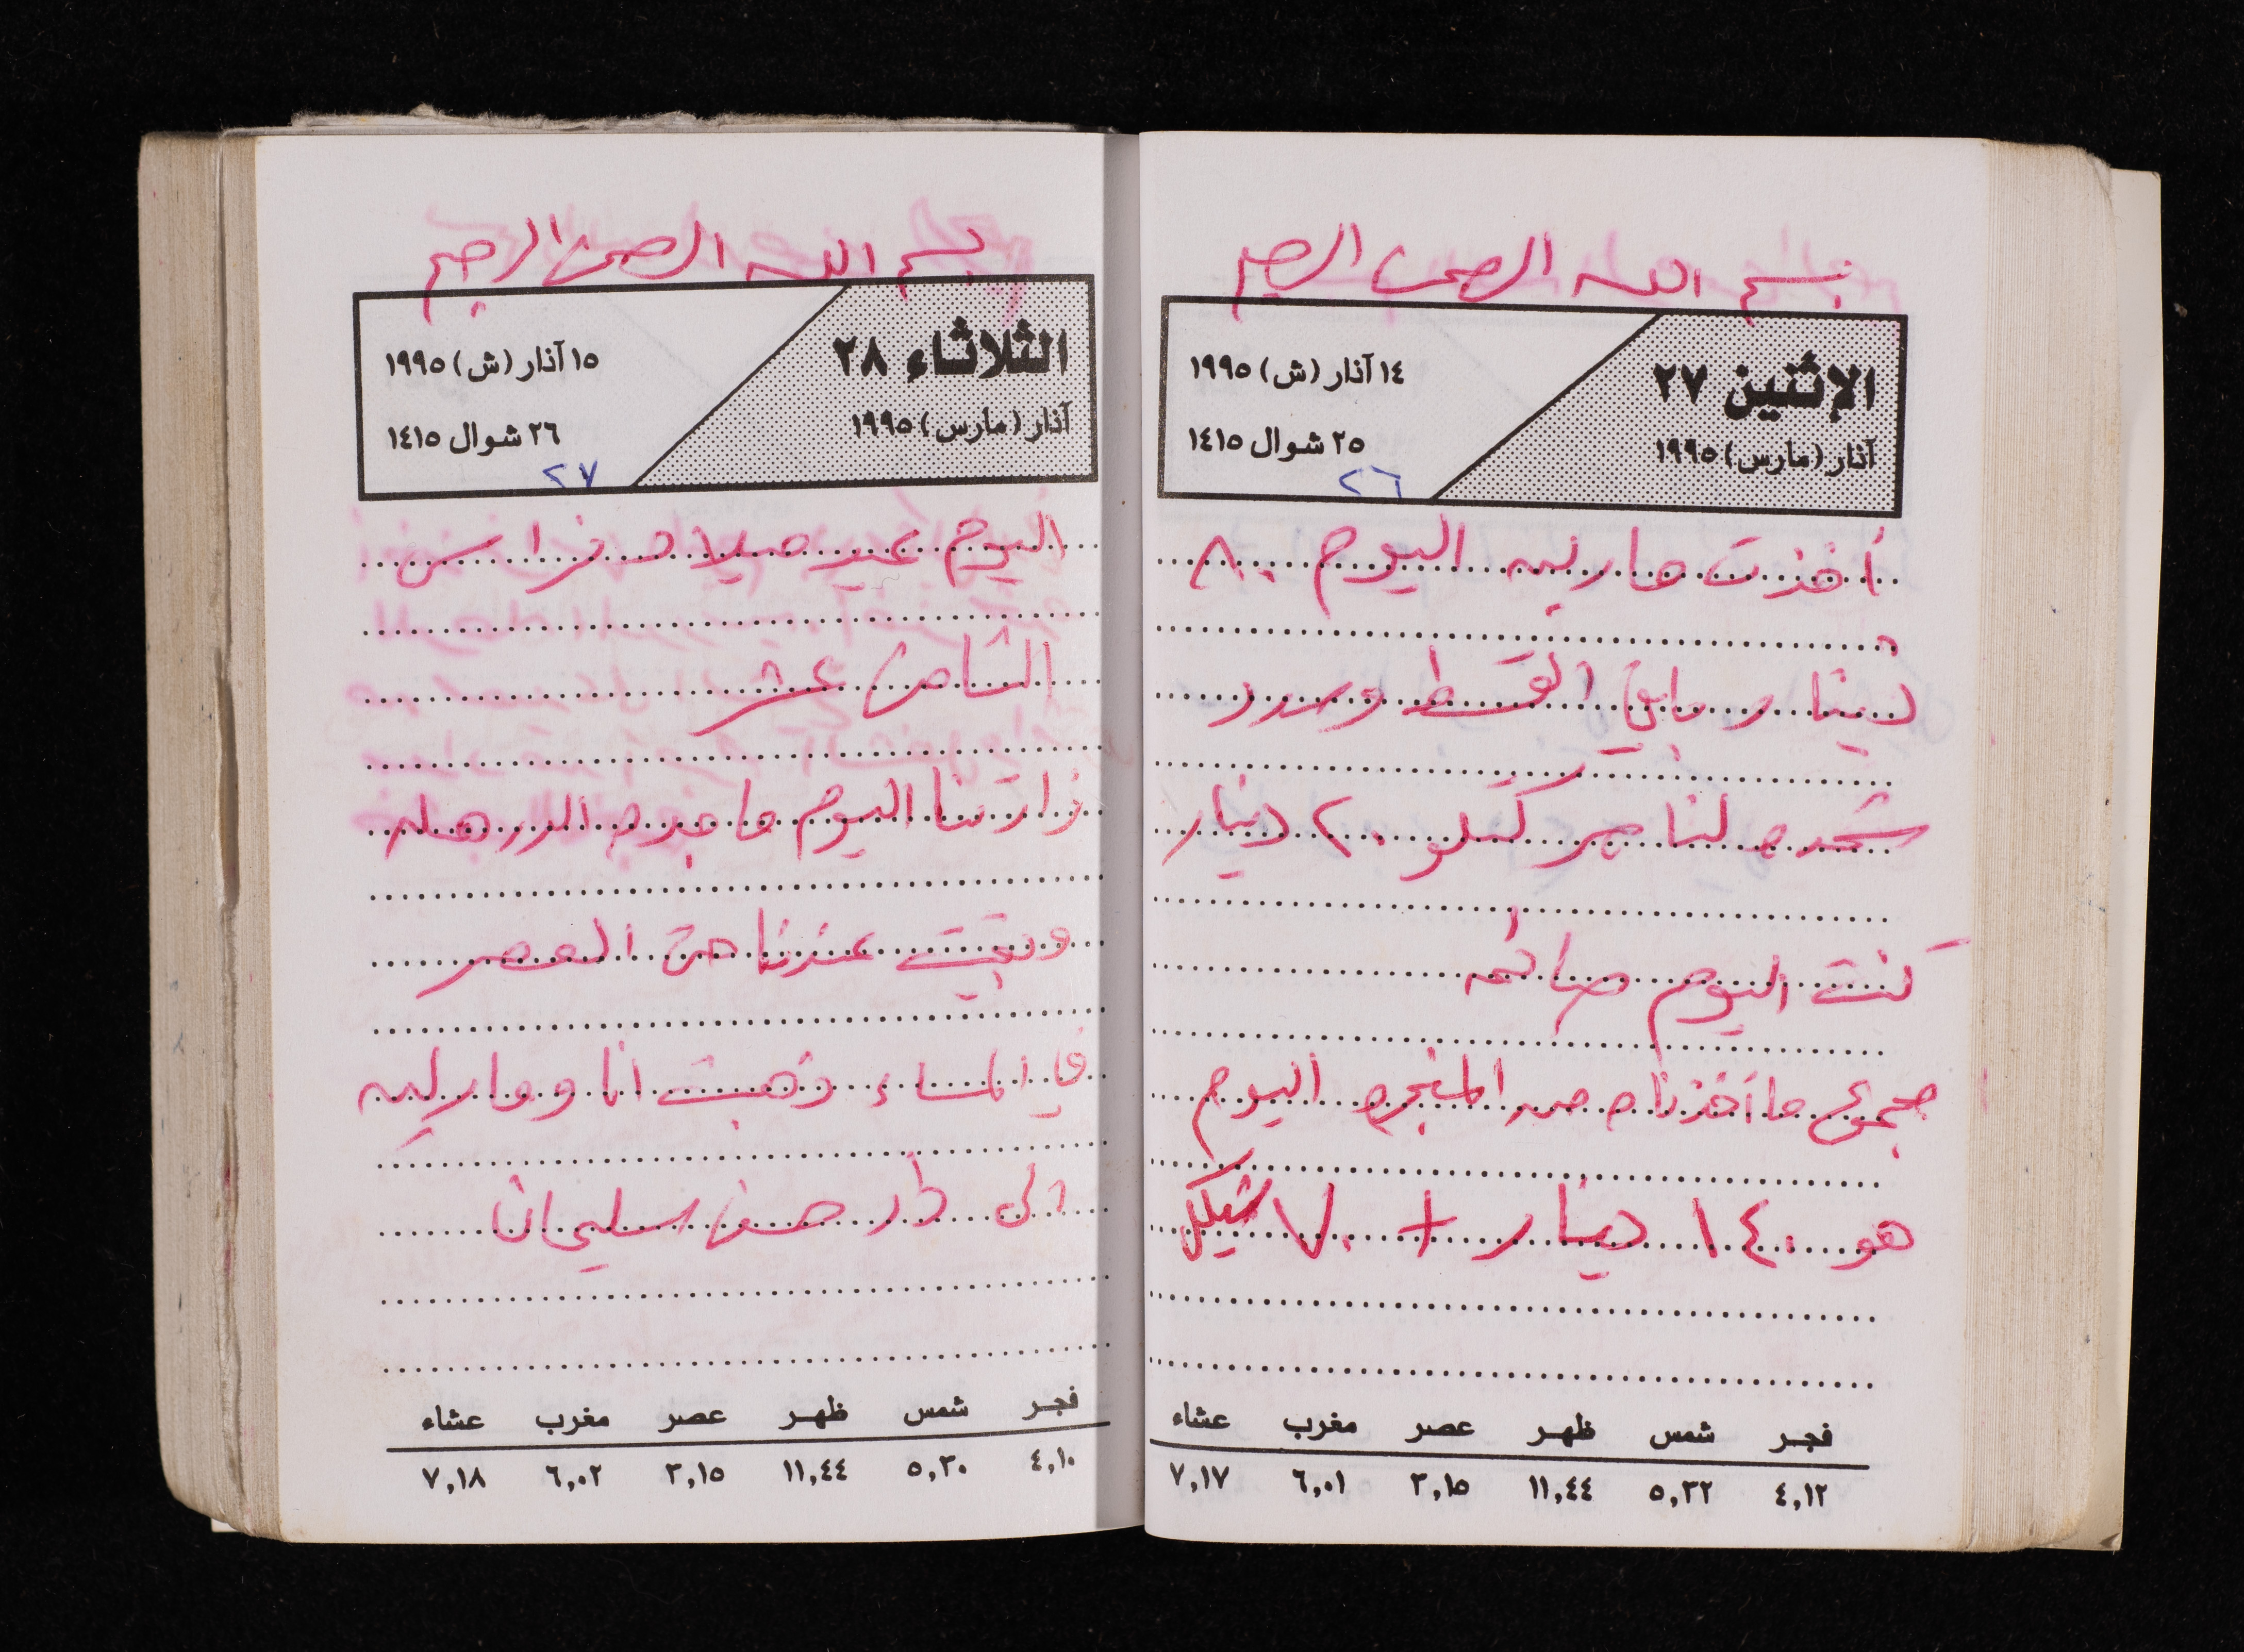 بسم الله الرحمن الرحيم
الإثنين ٢٧
آذار (مارس) ١٩٩٥
١٤ آذار (ش) ١٩٩٥
٢٥ شوال ١٤١٥
٢٦
أخذت ماريه اليوم ٨٠
دينار باقي القسط وسدد
شحده لناصر كتلو ٢٠ دينار
كنت اليوم صائمه
مجموع ما أخذناه من المنجره اليوم
هو ١٤٠ دينار + ٧٠ شيكل
فجر شمس ظهر عصر مغرب عشاء
٤,١٢ ٥,٣٢ ١١,٤٤ ٣,١٥ ٦,٠١ ٧,١٧
بسم الله الرحمن الرحيم
الثلاثاء ٢٨
آذار (مارس) ١٩٩٥
١٥ آذار (ش) ١٩٩٥
٢٦ شوال ١٤١٥
٢٧
اليوم عيد ميلاد فراس
الثامن عشر
زارتنا اليوم ماجده
وبقيت عندنا حتى العصر
في المساء ذهبت انا وماريه
الى دار حسن سليمان
فجر شمس ظهر عصر مغرب عشاء
٤,١٠ ٥,٣٠ ١١,٤٤ ٣,١٥ ٦,٠٢ ٧,١٨